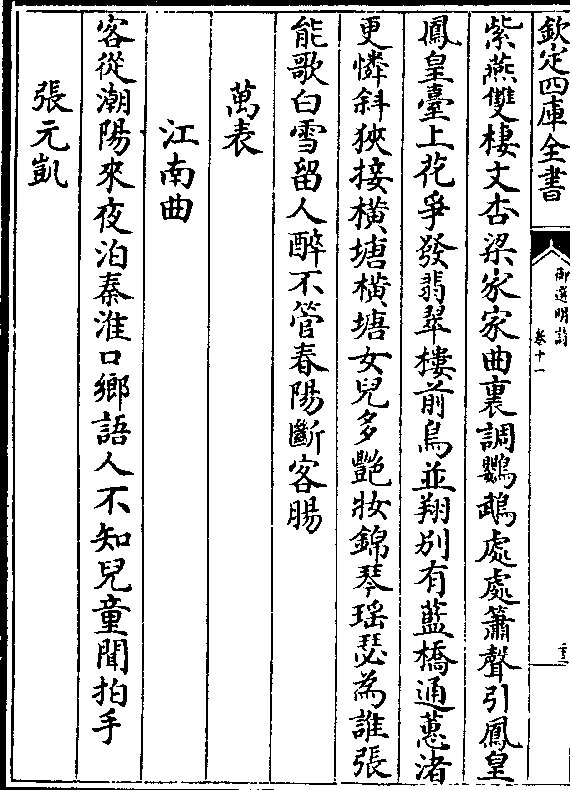 欽定四庫全書
御選明詩
卷十一
二十三
紫燕雙棲文杏梁家家曲裏調鸚鵡處處簫聲引鳳皇
鳳皇臺上花爭發翡翠樓前鳥並翔別有藍橋通蕙渚
更憐斜狹接橫塘橫塘女兒多艷妝錦琴瑶瑟為誰張
能歌白雪留人醉不管春陽斷客腸
萬表
江南曲
客從潮陽來夜泊秦淮口鄉語人不知兒童聞拍手
張元凱